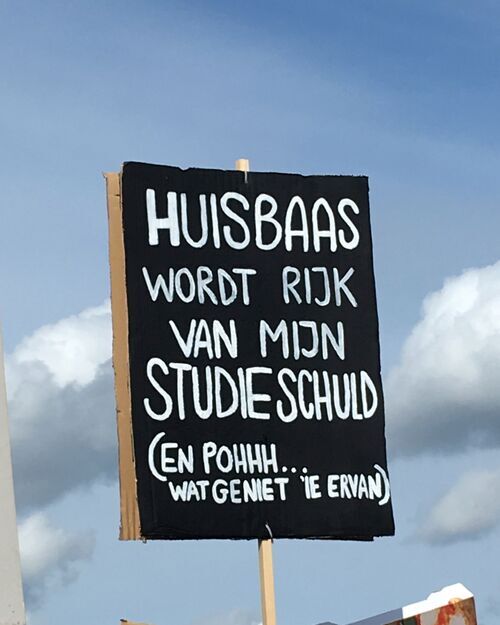 HUISBAAS
WORDT RIJK
VAN MIJN
STUDIESCHULD
(EN POHHH...
WAT GENIET 'IE ERVAN)